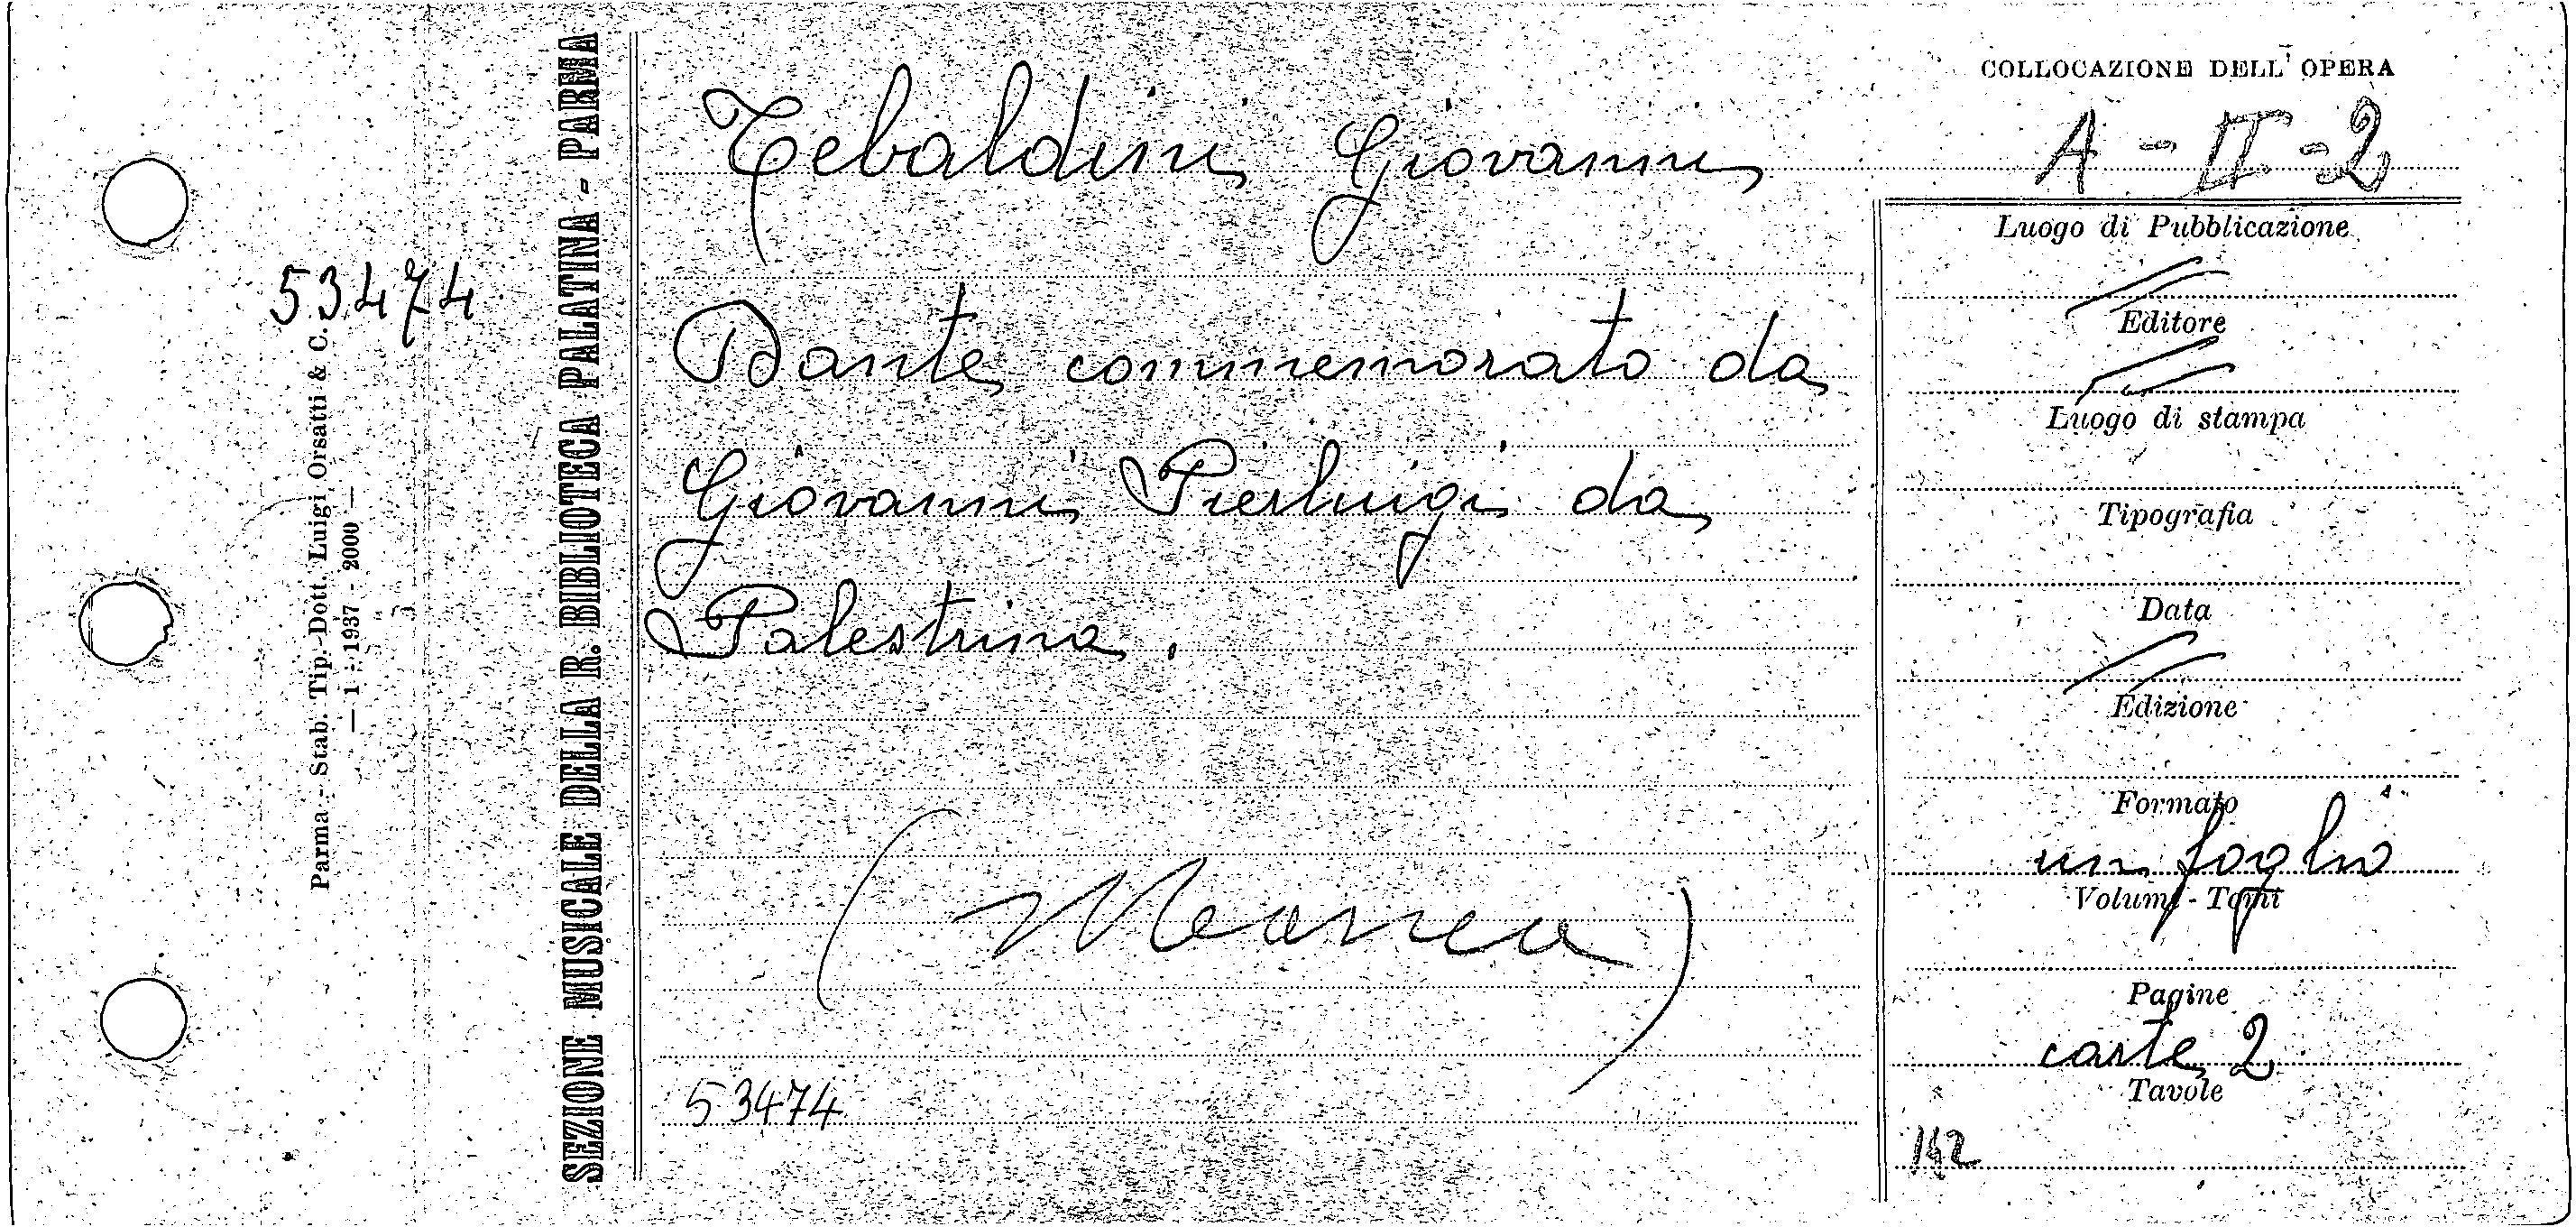 COLLOCAZIONE DELL'OPERA
A - II - 2
Tebaldini Giovanni
53474
Dante commemorato da
Giovanni Pierluigi da
Palestrina.
53474
SEZIONE MUSICALE DELLA R. BIBLIOTECA PALATINA - PARMA
Parma - Stab. Tip. Dott. Luigi Orsatti & C.
— 1 - 1937 - 2000 —
Luogo di Pubblicazione
Editore
Luogo di stampa
Tipografia
Data
Edizione
Formato
un foglio
Volumi - Tomi
Pagine
carte 2
Tavole
142